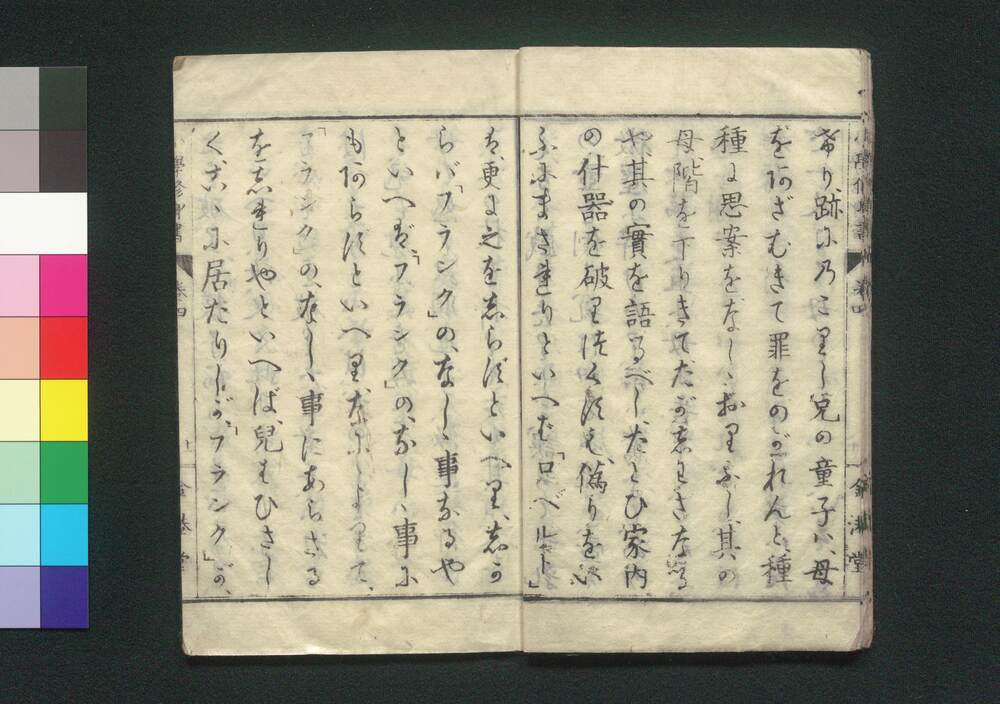 希り、跡に乃こりし兒の童子ハ、母
をあざむきて罪をのがれんと、種
種に思案をなし、おりふし、其の
母階を下りきて、たが志わざなる
や、其の實を語るべし、たとひ家内
の什器を破り徒くすも、偽りをい
ふにまされりといへば、「ロベルット」
は、更に之を志らずといへり、志か
らバ「フランク」の、なしゝ事なるや
といへば、「フランク」の、なしゝ事に
もあらずといへり、なによりて、
「フランク」の、なしゝ事にあらざる
を志れりやといへば、兒もひさし
く、こゝに居たりしが、「フランク」が、
小學修身書
卷四